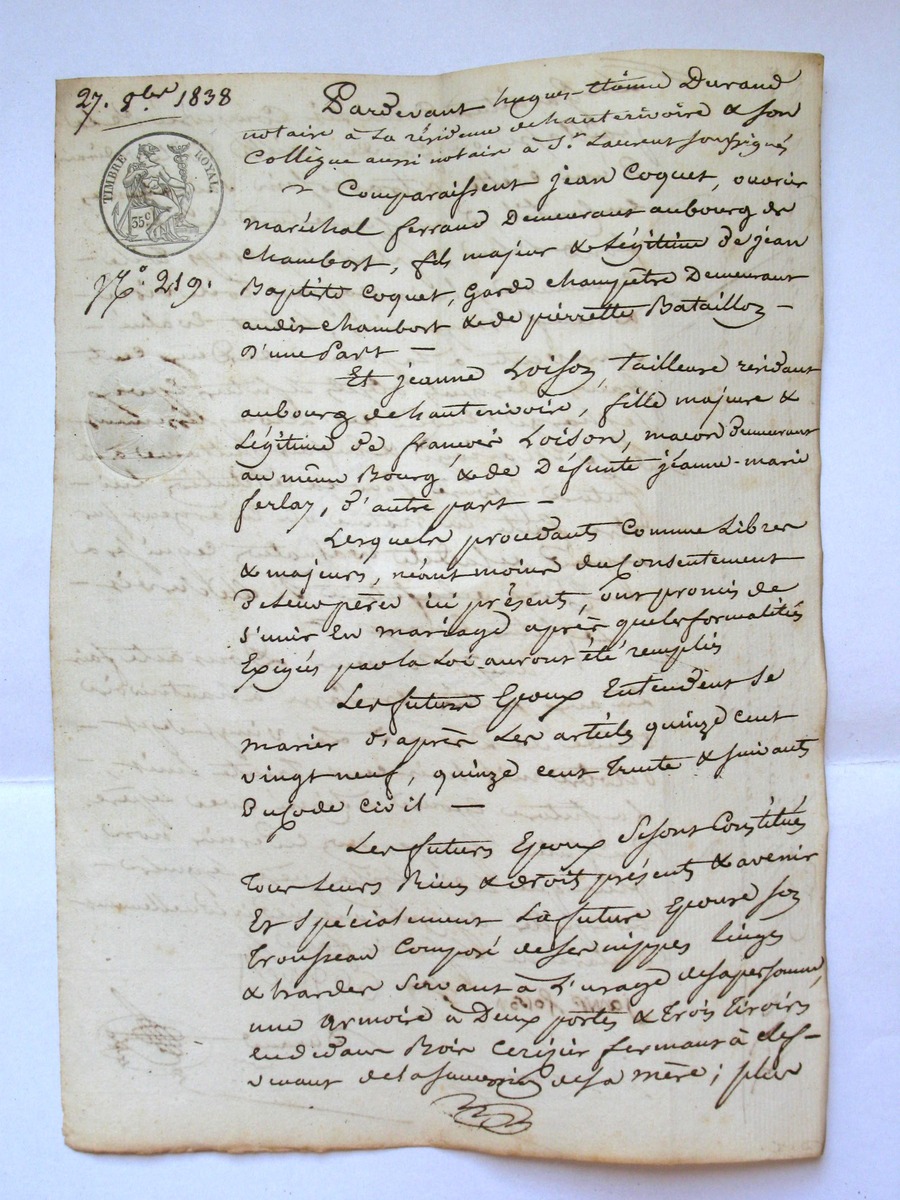 27. 8bre 1838
TIMBRE ROYAL
35c
No. 219.
Pardevant hugues-Etienne Durand
notaire à La résidence de hauterivoire & son
Collègue aussi notaire à St. Laurent soussignés
Comparaissent jean Coquet, ouvrier
maréchal ferrand Demeurant au bourg de
chambost, fils majeur & Légitime de jean
Baptiste Coquet, Garde champêtre Demeurant
audit chambost & de pierrette Bataillon –
D'une Part –
Et jeanne Loison, tailleuse résidant
au bourg de hauterivoire, fille majeure &
Légitime de françois Loison, maçon demeurant
au même Bourg & de Défunte jeanne-marie
ferlay, d'autre part –
Lesquels procédants Comme Libres
& majeurs, néant moins du Consentement
De Leurs pères ici présents, ont promis de
s'unir En mariage après que les formalités
Exigées par la Loi auront été remplies
Les futurs Epoux Entendent se
marier d'après Les articles quinze cent
vingt neuf, quinze cent trente & suivants
Du Code civil –
Les futurs Epoux se sont Constitués
tous Leurs Biens & droits présents & avenir
Et spécialement La future Epouse son
trousseau Composé de ses nippes Linges
& hardes Servant à L'usage de sa personne,
une Armoire à Deux portes & trois tiroirs
en dedans Bois Cerisier fermant à clef –
venant de la succession de sa mère ; plus